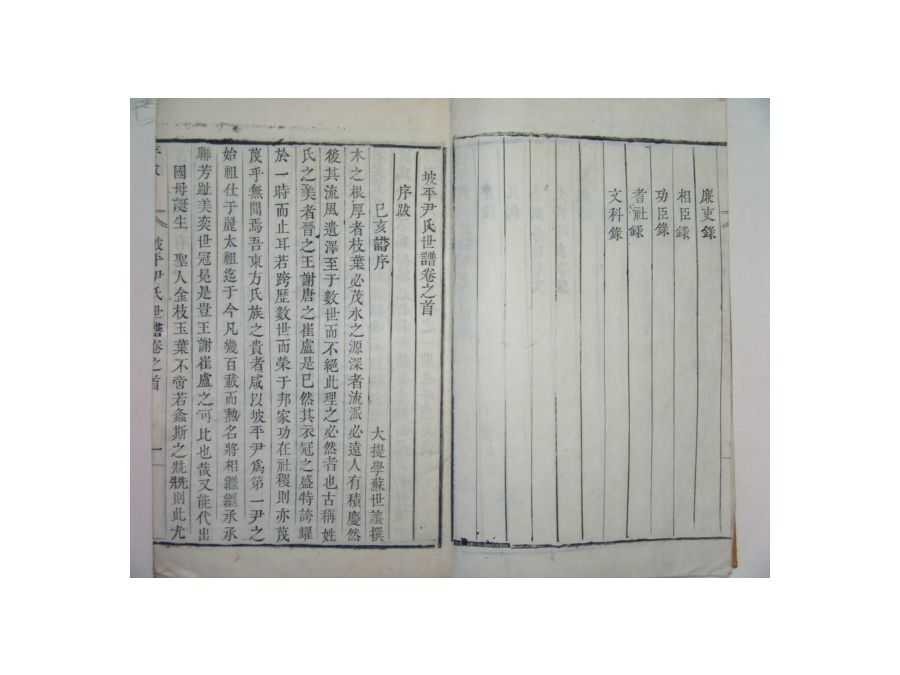 廉吏錄
相臣錄
功臣錄
耆社錄
文科錄
坡平尹氏世譜卷之首
序跋
己亥譜序
大提學蘇世讓撰
木之根厚者枝葉必茂水之源深者流派必遠人有積慶然
後其流風遺澤至于數世而不絕此理之必然者也古稱姓
氏之美者晉之王謝唐之崔盧是已然其衣冠之盛特誇耀
於一時而止耳若跨歷數世而榮于邦家功在社稷則亦蔑
蔑乎無聞焉吾東方氏族之貴者咸以坡平尹爲第一尹之
始祖仕于麗太祖迄于今凡幾百載而勲名將相繼繼承承
聯芳趾美奕世冠冕是豈王謝崔盧之可比也哉又能代出
國母誕生聖人金枝玉葉不啻若螽斯之兟兟則此尤
坡平尹氏世譜卷之首
一